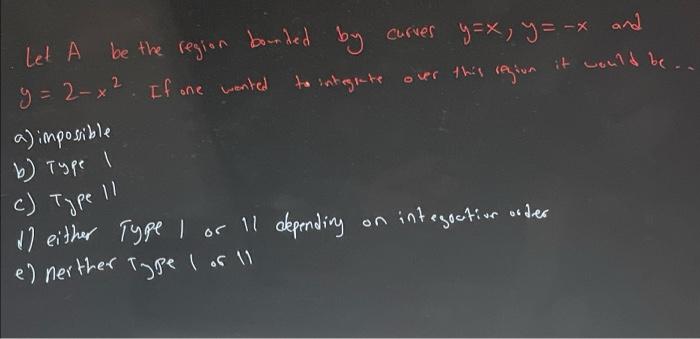 Let A be the region bounded by curves y=x, y=-x and
y = 2-x². If one wanted to integrate over this region it would be...
a) impossible
b) Type I
c) Type II
d) either Type I or II depending on integration order
e) neither Type I or II